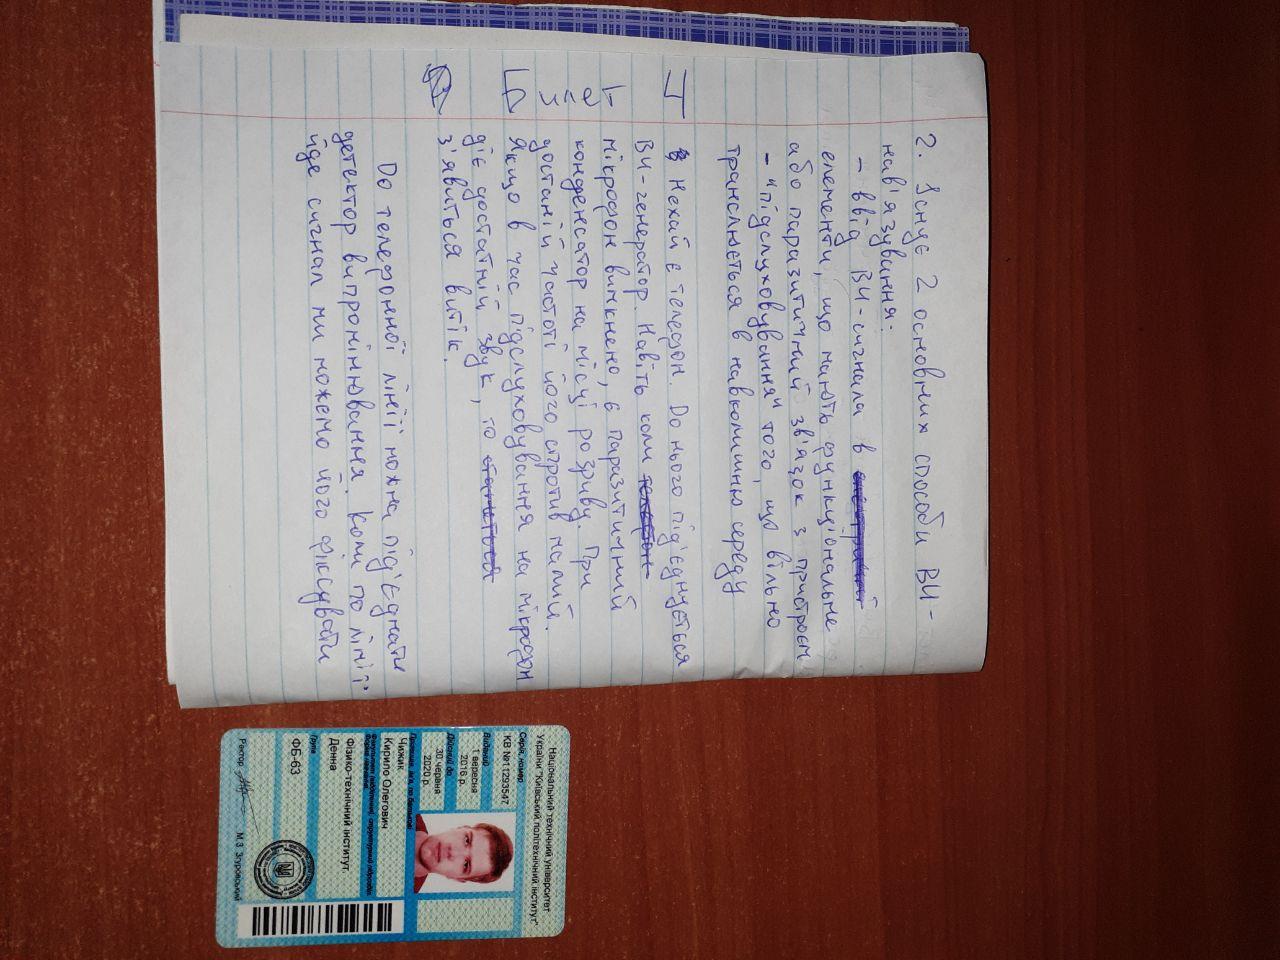 2. Існує 2 основних способи ВЧ-
нав'язування.
- ввід ВЧ-сигнала в
елементи, що мають функціональне
або паразитичний зв'язок з пристроєм
- "підслуховування" того, що вільно
транслюється в навколишню середу
Нехай є телефон. До нього під'єднується
ВЧ-генератор. Навіть коли
мікрофон вимкнено, є паразитичний
конденсатор на місці розриву. При
достаній частоті його спротив малий.
Якщо в час підслуховування на мікрофон
діє достатній звук, то
з'явиться витік.
До телефонної лінії можна під'єднати
детектор випромінювання. Коли по лінії
йде сигнал ми можемо його фіксувати
Національний технічний університет
України "Київський політехнічний інститут"
Серія, номер
КВ №11293547
Виданий
1 вересня
2016 р.
Дійсний до
30 червня
2020 р.
Прізвище, ім'я, по батькові
Чижик
Кирило Олегович
Фізико-технічний інститут
Денна
Група
ФБ-63
Ректор
М.З. Згуровський